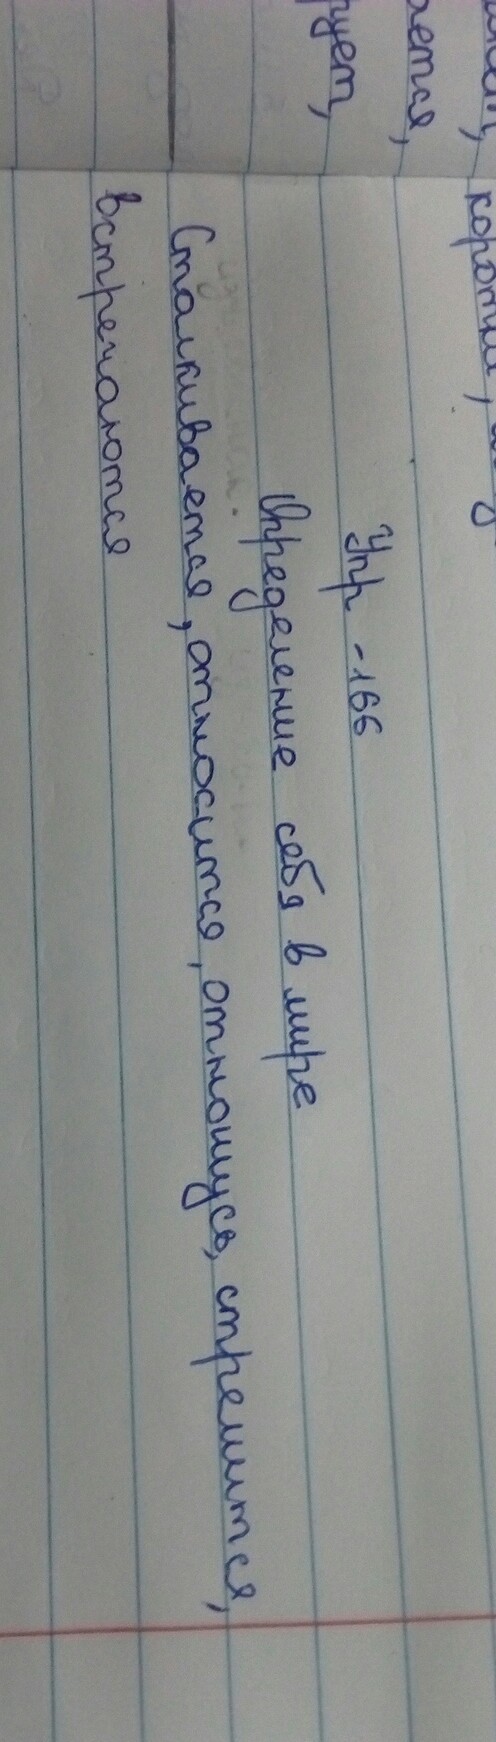 рует,
ается,
коротки,
Упр -166
Определение себя в мире
Сталкивается, относится, отношусь, стремится,
встречаются